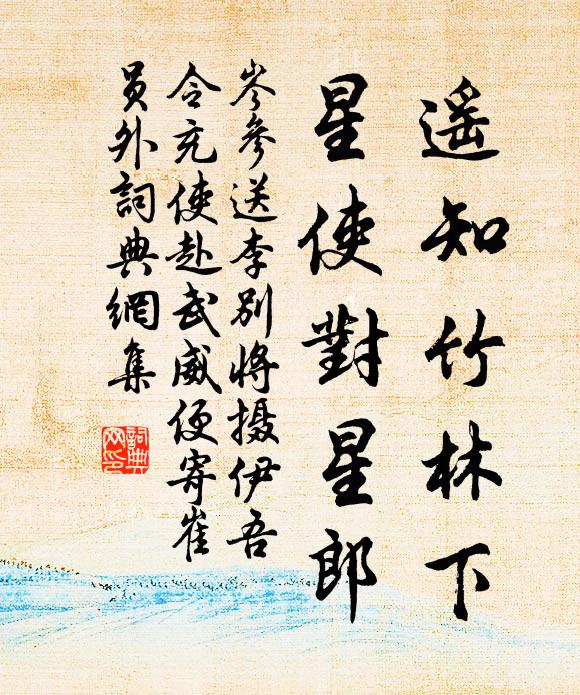 遥知竹林下
星使對星郎
岑參送李别將摄伊吾
令充使赴武威便寄崔
員外詞典網集
詞典
网印